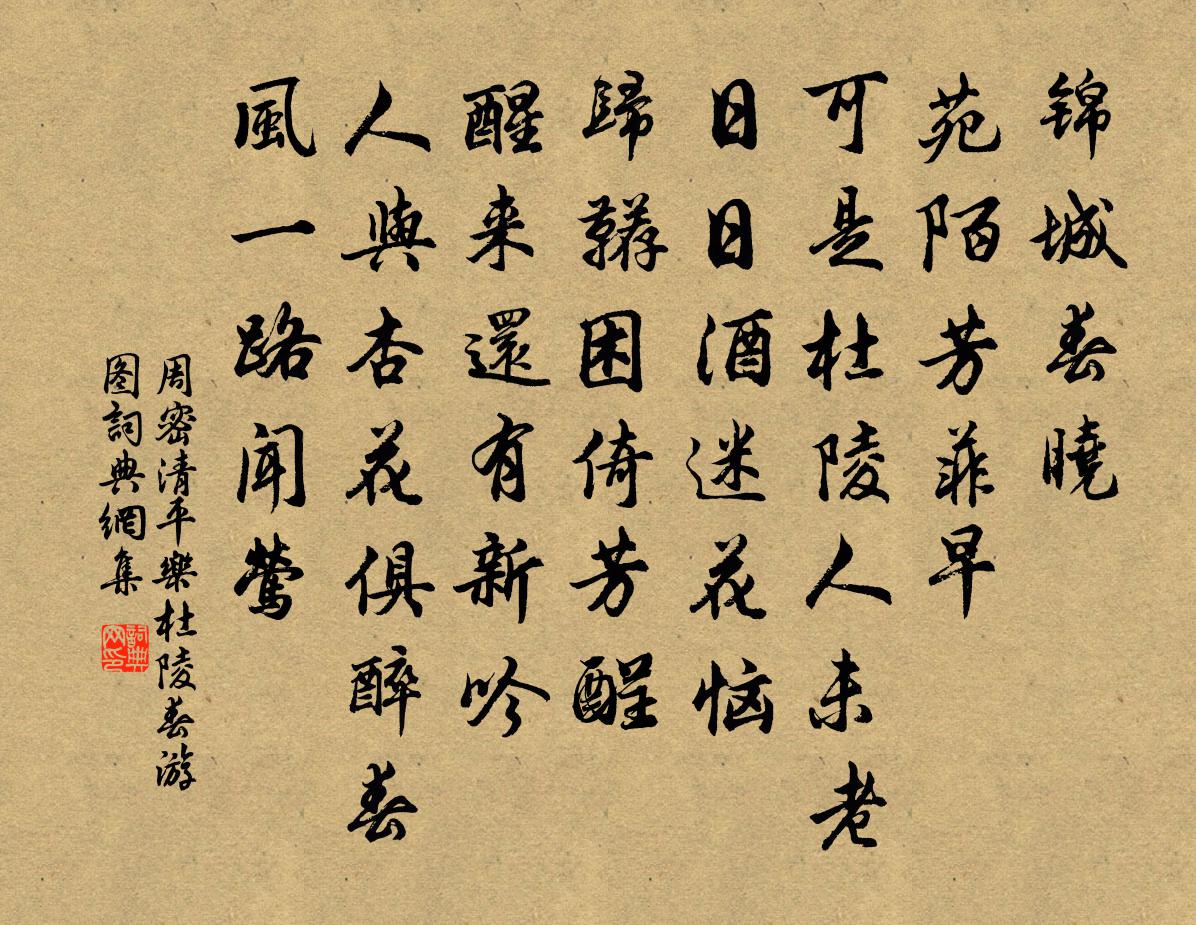 锦城春曉
苑陌芳菲早
可是杜陵人未老
日日酒迷花恼
歸韉困倚芳酲
醒来還有新吟
人與杏花俱醉春
風一路闻鶯
周密清平樂杜陵春游
图詞典網集
詞典网印